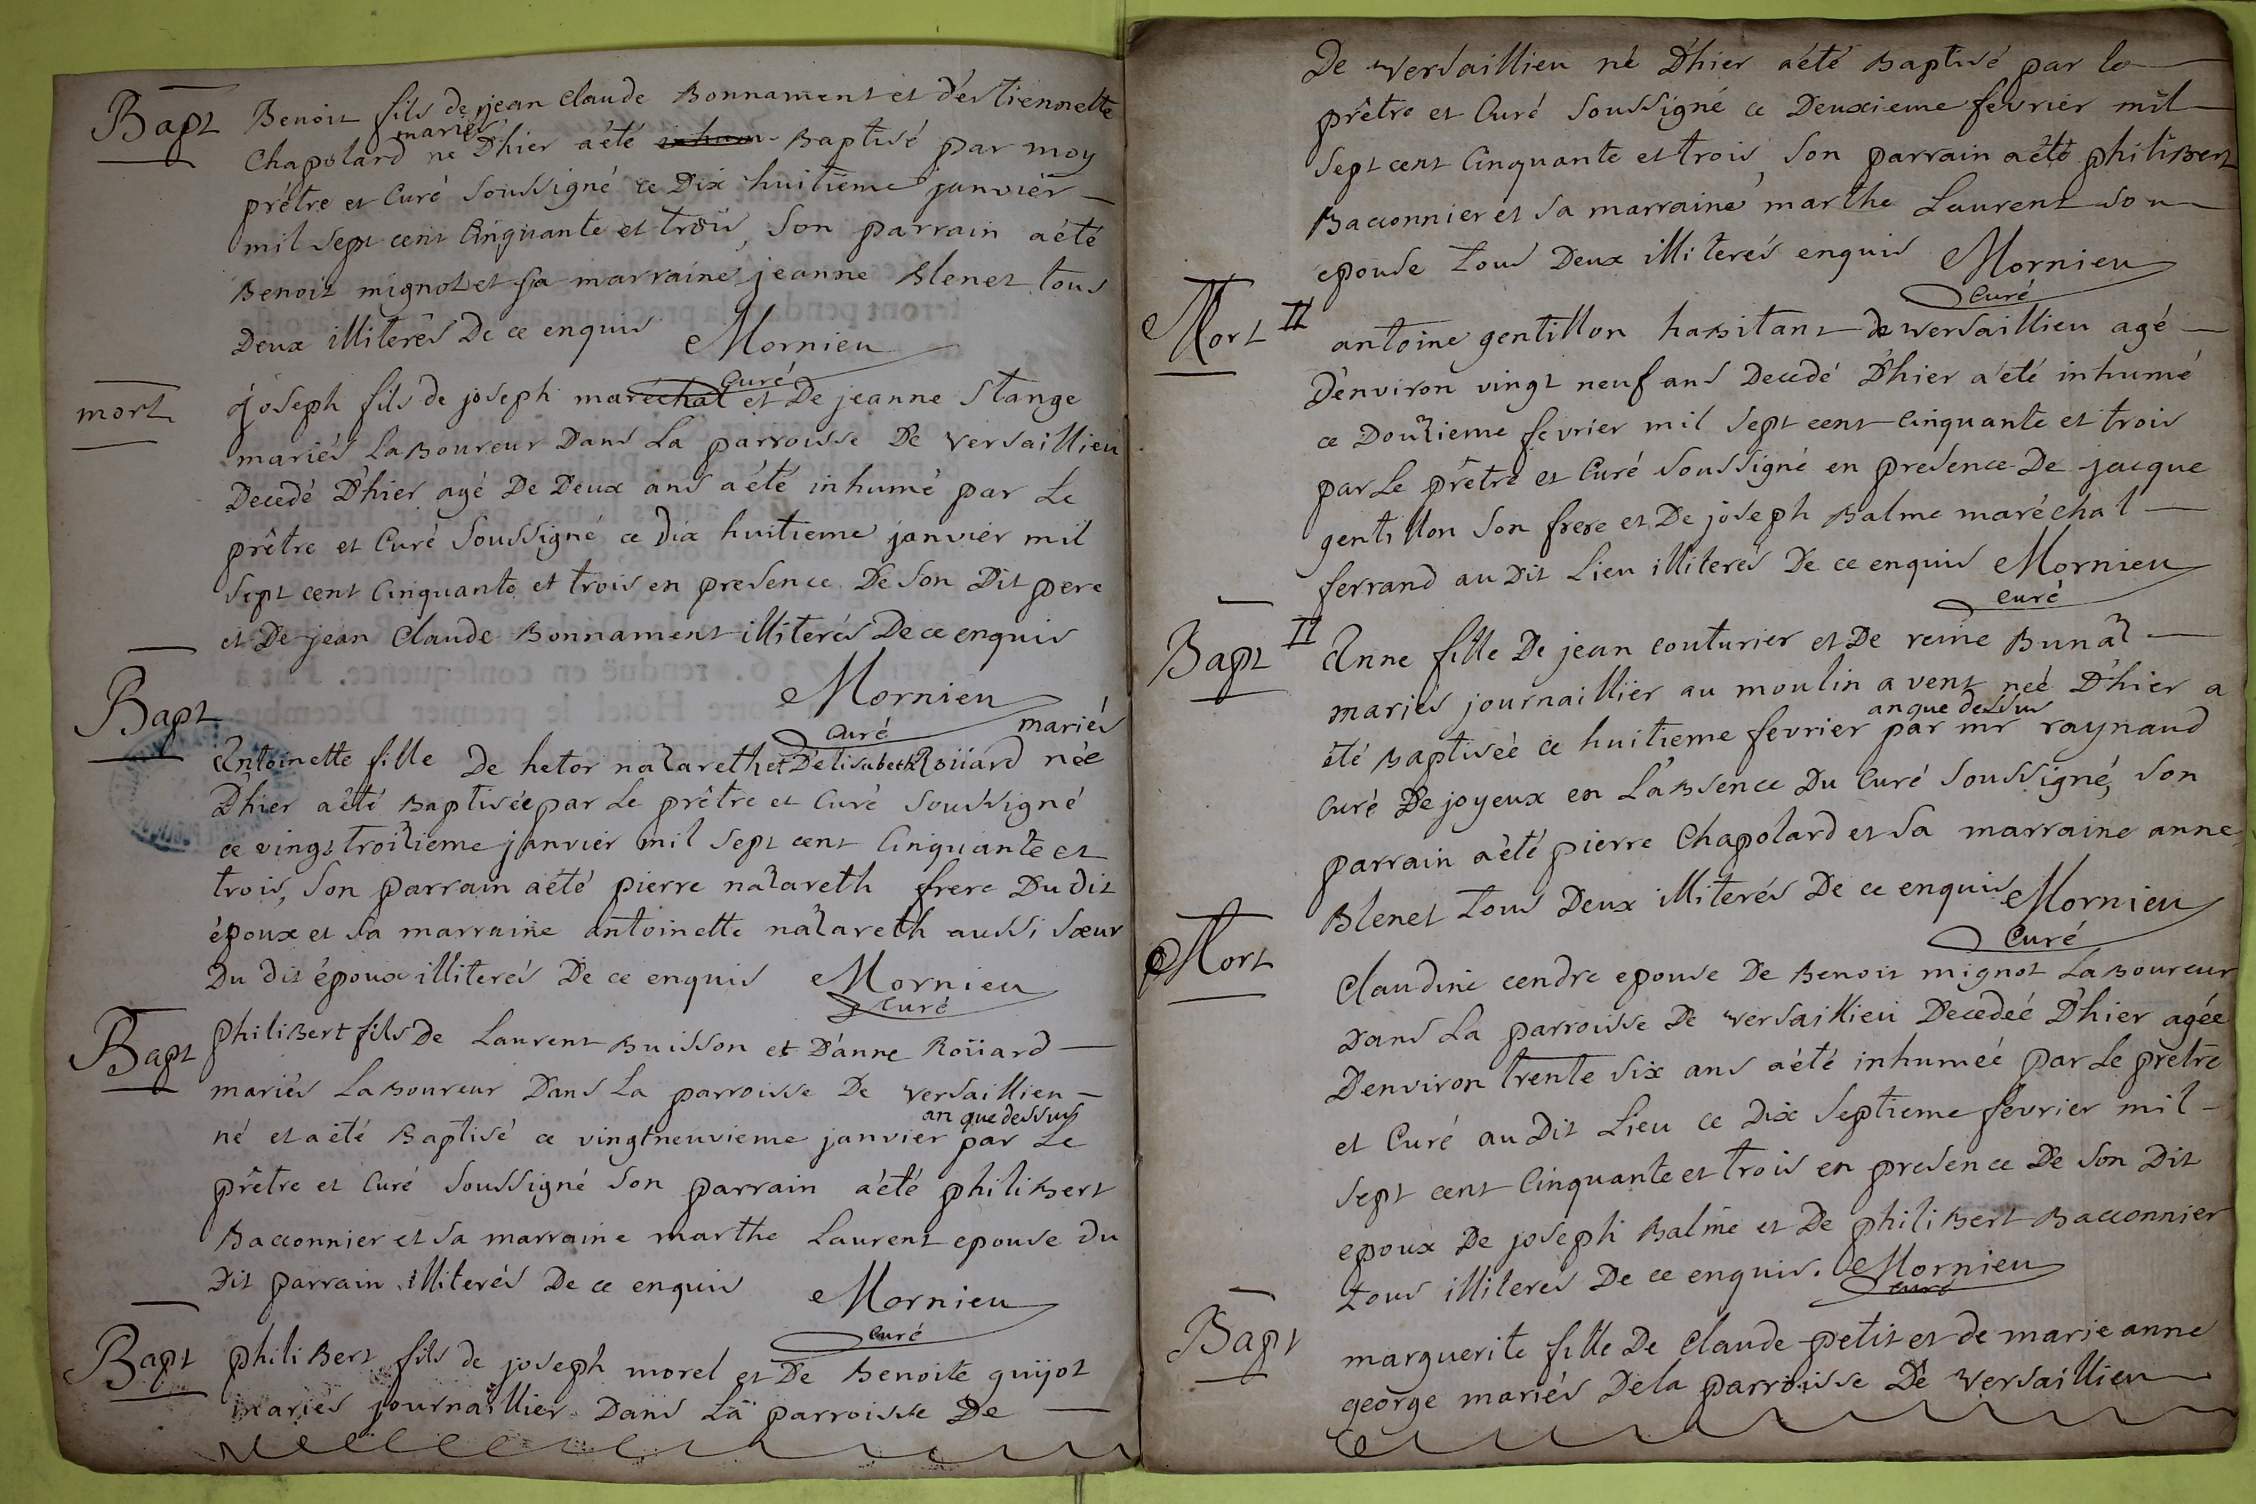 Bapt
Benoit fils de jean claude Bonnament et d'estiennette
mariés
Chapolard né D'hier a été Baptisé par moy
prêtre et Curé soussigné ce Dix huitieme janvier
mil sept cent Cinquante et trois, son parrain a été
Benoit mignot et sa marraine jeanne Blenet tous
Deux illiterés De ce enquis Mornieu
Curé
mort
joseph fils de joseph maréchal et De jeanne Stange
mariés Laboureur Dans La parroisse De versaillieu
Decedé D'hier agé De Deux ans a été inhumé par Le
prêtre et Curé soussigné ce dix huitieme janvier mil
sept cent Cinquante et trois en presence De son Dit pere
et De jean Claude Bonnament illiterés De ce enquis
Mornieu
Curé
mariés
Bapt
Antoinette fille De hetor nazareth et D'elisabeth Roüard née
D'hier a été Baptisée par Le prêtre et Curé soussigné
ce vingt troizieme janvier mil sept cent Cinquante et
trois, son parrain a été pierre nazareth frere Du dit
époux et sa marraine antoinette nazareth aussi sœur
Du dit époux illiterés De ce enquis Mornieu
Curé
Bapt
philibert fils De Laurent Buisson et D'anne Roüard
mariés Laboureur Dans La parroisse De versaillieu
an que dessus
né et a été Baptisé ce vingt neuvieme janvier par Le
prêtre et Curé soussigné son parrain a été philibert
Bacconnier et sa marraine marthe Laurent epouse du
Dit parrain illiterés De ce enquis Mornieu
Curé
Bapt
philibert fils de joseph morel et De Benoite guijot
mariés journaillier Dans La parroisse De
De versaillieu né D'hier a été Baptisé par le
prêtre et Curé soussigné ce Deuxieme fevrier mil
sept cent Cinquante et trois, son parrain a été philibert
Bacconnier et sa marraine marthe Laurent son
epouse tous Deux illiterés enquis Mornieu
Curé
Mort II
antoine gentillon habitant de versaillieu agé
D'environ vingt neuf ans Decedé D'hier a été inhumé
ce Douzieme fevrier mil sept cent Cinquante et trois
par Le prêtre et Curé soussigné en presence De jacque
gentillon son frere et De joseph Balme maréchal
ferrand au Dit Lieu illiterés De ce enquis Mornieu
curé
Bapt II
Anne fille De jean couturier et De reine Bunaz
mariés journaillier au moulin a vent neé D'hier a
an que dessus
été Baptiseé ce huitieme fevrier par mr raynaud
Curé De joyeux en L'absence Du Curé soussigné, son
parrain a été pierre Chapolard et sa marraine anne
Blenet tous Deux illiterés De ce enquis Mornieu
Curé
Mort
Claudine cendre epouse De Benoit mignot Laboureur
Dans La parroisse De versaillieu Decedeé D'hier agée
D'environ trente six ans a été inhumeé par Le prêtre
et Curé au Dit Lieu ce Dix septieme fevrier mil
sept cent Cinquante et trois en presence De son Dit
epoux De joseph Balme et De philibert Bacconnier
tous illiterés De ce enquis. Mornieu
curé
Bapt
marguerite fille De Claude petit et de marie anne
george mariés De la parroisse De versaillieu